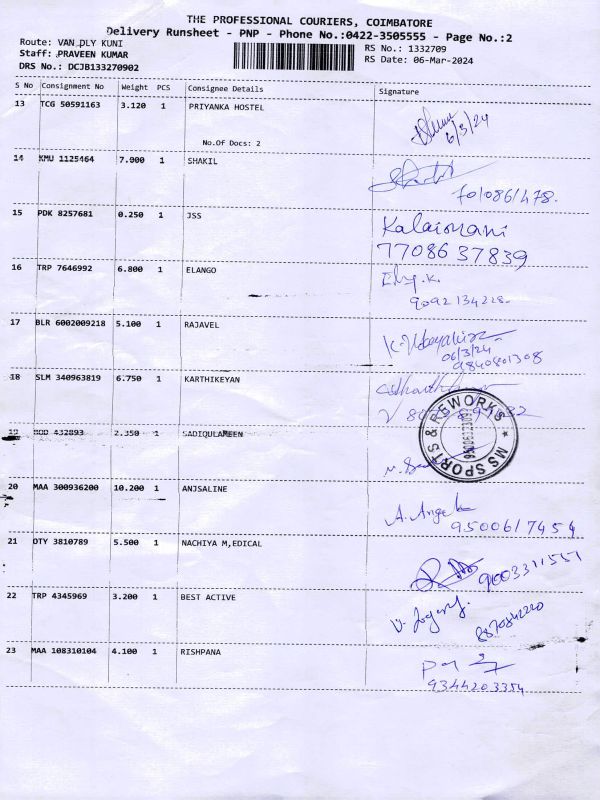 THE PROFESSIONAL COURIERS, COIMBATORE
Delivery Runsheet - PNP - Phone No.:0422-3505555 - Page No.:2
Route: VAN PLY KUNI
RS No.: 1332709
Staff: PRAVEEN KUMAR
RS Date: 06-Mar-2024
DRS No.: DCJB133270902
S No Consignment No Weight PCS Consignee Details Signature
13 TCG 50591163 3.120 1 PRIYANKA HOSTEL
6/3/24
No.Of Docs: 2
14 KMU 1125464 7.900 1 SHAKIL
15 PDK 8257681 0.250 1 JSS
Kalaimani
77086 37839
16 TRP 7646992 6.800 1 ELANGO
9092134228
17 BLR 6002009218 5.100 1 RAJAVEL
06/3/24
9840801308
18 SLM 340963819 6.750 1 KARTHIKEYAN
MS SPORTS & REWORKS
19 432893 2.350 1 SADIQULAMEEN
20 MAA 300936200 10.200 1 ANJSALINE
A. Angel
9500617454
21 OTY 3810789 5.500 1 NACHIYA M,EDICAL
22 TRP 4345969 3.200 1 BEST ACTIVE
23 MAA 108310104 4.100 1 RISHPANA
9344203354